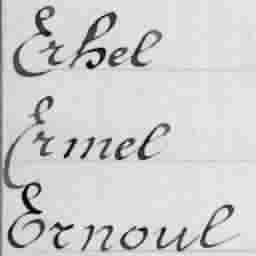 Erhel
Ermel
Ernoul